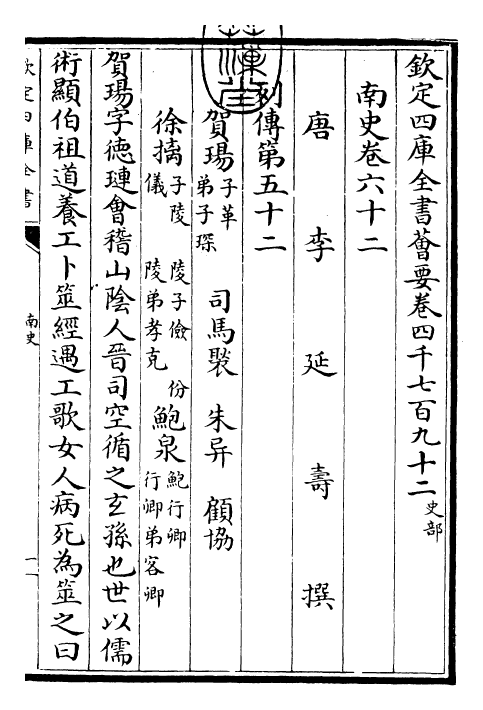 欽定四庫全書薈要卷四千七百九十二 史部
南史卷六十二
唐 李 延 壽 撰
列傳第五十二
賀瑒 子革 弟子琛 司馬褧 朱异 顧協
徐摛 子陵 陵子儉 份 儀 陵弟孝克 鮑泉 鮑行卿 行卿弟客卿
賀瑒字德璉會稽山陰人晉司空循之玄孫也世以儒
術顯伯祖道養工卜筮經遇工歌女人病死為筮之曰
欽定四庫全書
南史
一